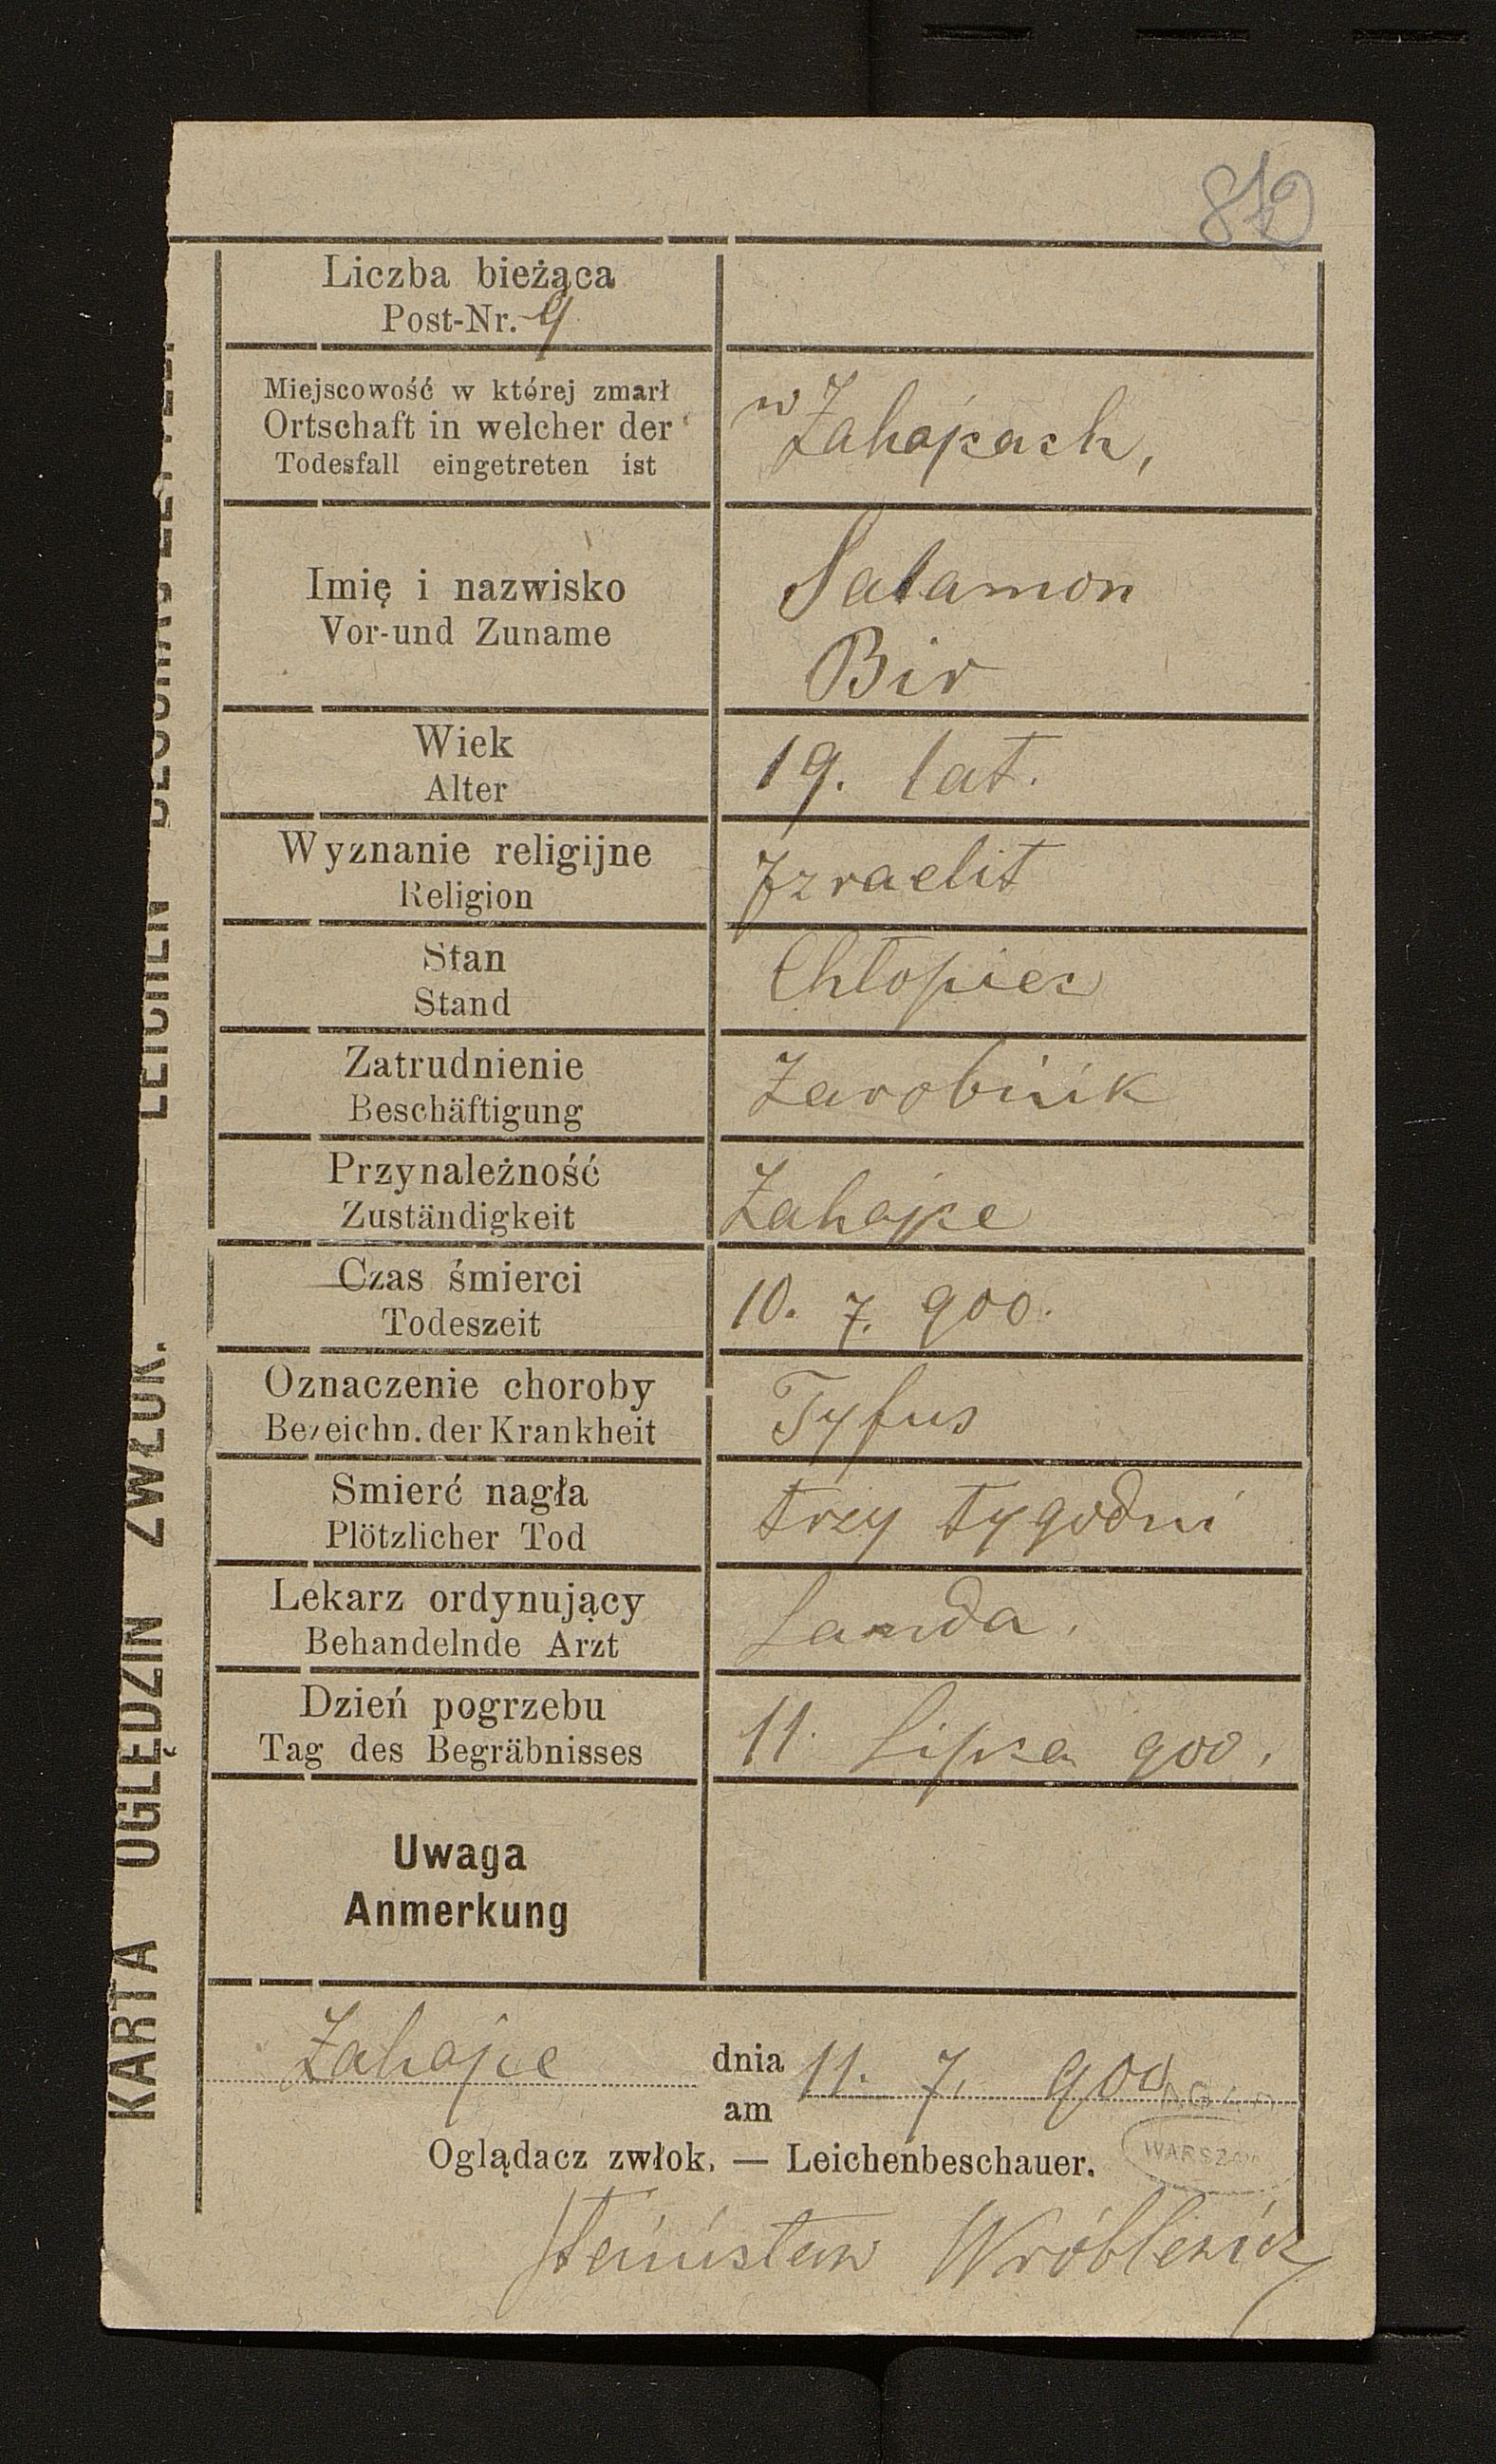 812
Liczba bieżąca
Post-Nr. 9
Miejscowość w której zmarł
Ortschaft in welcher der
Todesfall eingetreten ist
w Zahajpach,
Imię i nazwisko
Vor-und Zuname
Salamon
Bir
Wiek
Alter
19. lat.
Wyznanie religijne
Religion
Izraelit
Stan
Stand
Chłopiec
Zatrudnienie
Beschäftigung
Zarobnik
Przynależność
Zuständigkeit
Zahajpe
Czas śmierci
Todeszeit
10. 7. 900.
Oznaczenie choroby
Bezeichn. der Krankheit
Tyfus
Smierć nagła
Plötzlicher Tod
trzy tygodni
Lekarz ordynujący
Behandelnde Arzt
Landa.
Dzień pogrzebu
Tag des Begräbnisses
11. Lipca 900.
Uwaga
Anmerkung
Zahajpe dnia 11. 7. 900
am
Oglądacz zwłok. — Leichenbeschauer.
Stanisław Wróblewicz
KARTA OGLĘDZIN ZWŁOK. — LEICHEN
WARSZAWA